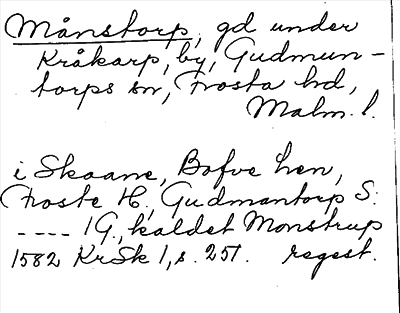 Månstorp, gd under
Kråkarp, by, Gudmun-
torps sn, Frosta hd,
Malm. l.
i Skaane, Bosve Len,
Froste H., Gudmantorp S:
---- 1 G., kaldet Monstrup
1582 KrSk 1, s. 251. regest.